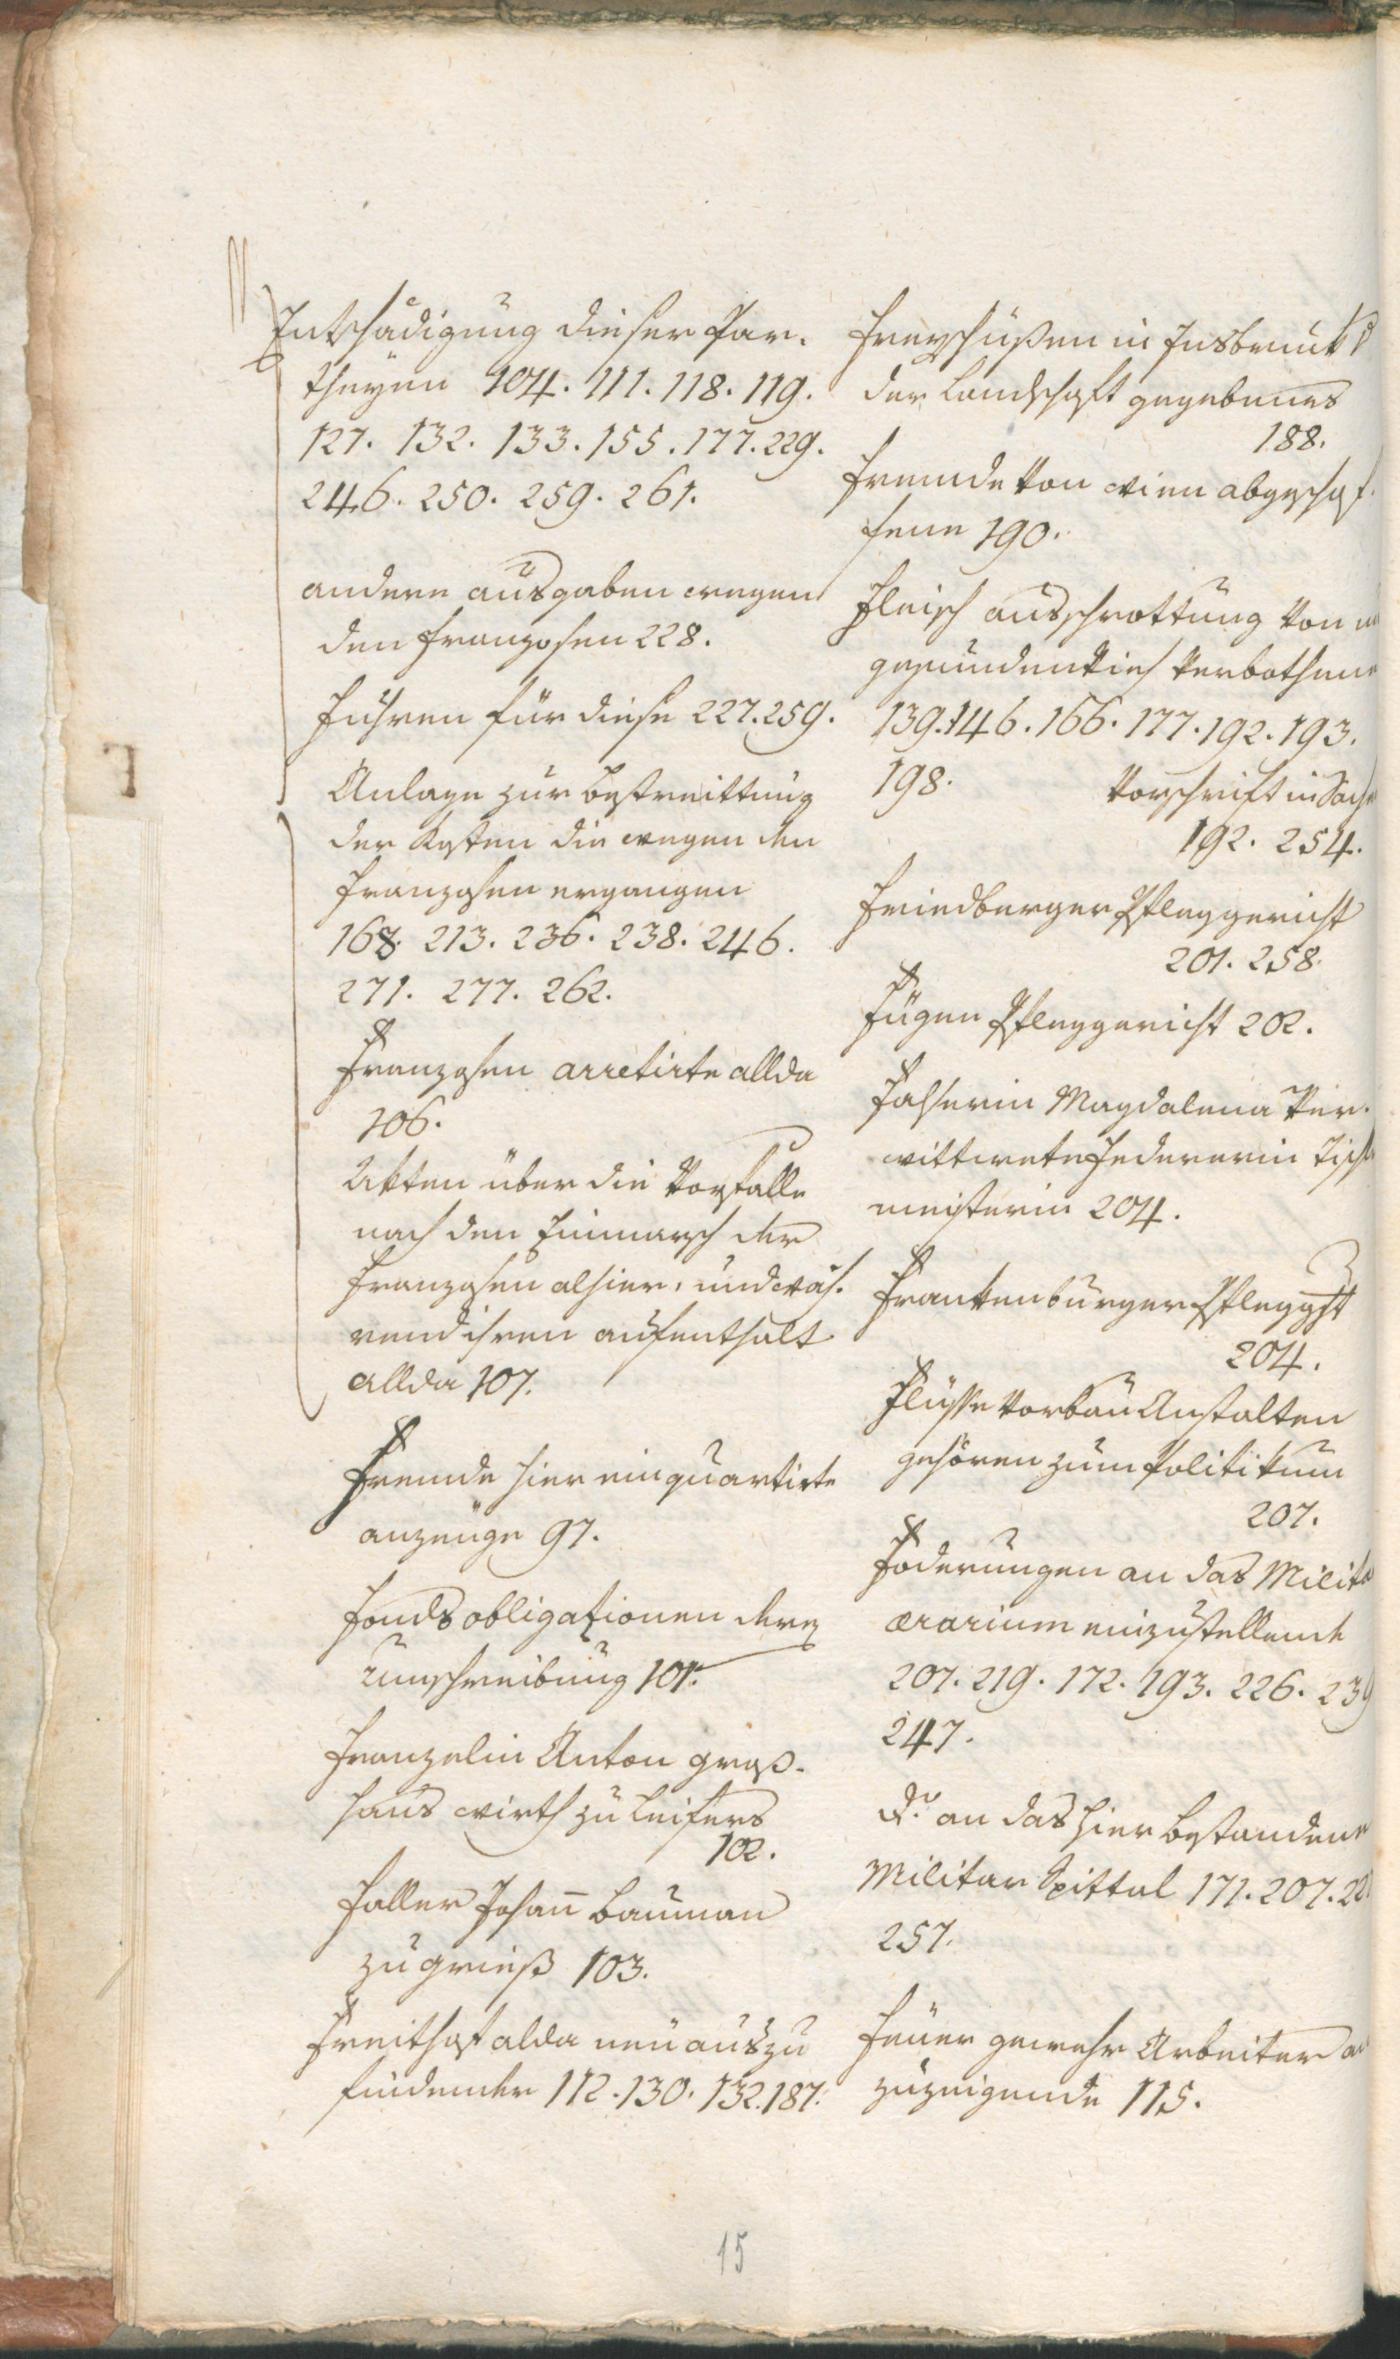 Entschädigung dieser Par-
theyen 104. 111. 118. 119.
127. 132. 133. 155. 177. 229.
246. 250. 259. 261.
andere ausgaben wegen
den franzosen 228.
Fuhren für diese 227. 259.
Anlage zur bestreittung
der kosten die wegen den
franzosen ergangen
168. 213. 236. 238. 246.
271. 277. 262.
Franzosen arretirte allda
106.
Akten über die Vorfälle
nach den Einmarsch der
Franzosen alhier, und wäh-
rend ihren aufenthalt
allda 107.
Fremde hier einquartirte
anzeige 97.
Fonds obligazionen deren
umschreibung 101.
Franzelin Anton groß-
haus wirth zu Leifers
102.
Faller Johann bauman
zu grieß 103.
Freithof alda neu auszu
findender 112. 130. 132. 187.
Freyschüßen in Insbruk
der Landschaft gegebenes
188.
Fremde von wien abgeschaf-
fene 190.
Fleisch ausschrottung von
gesunden Vieh verbothene
139. 146. 166. 177. 192. 193.
198. Vorschrift in Sache
192. 254.
Friedberger Pfleggericht
201. 258.
Fügen Pfleggericht 202.
Fasserin Magdalena Ver-
wittwete Federerin Tisch
meisterin 204.
Frankenburger Pflegght
204.
Flüsse Vorbau Anstalten
gehören zum Politikum
207.
Foderungen an das Milita
ærarium einzustellende
207. 219. 172. 193. 226. 239
247.
do. an das hier bestandene
Militar Spittal 171. 207.
257.
Feuer gewehr Arbeiter
zuzeigende 115.
15